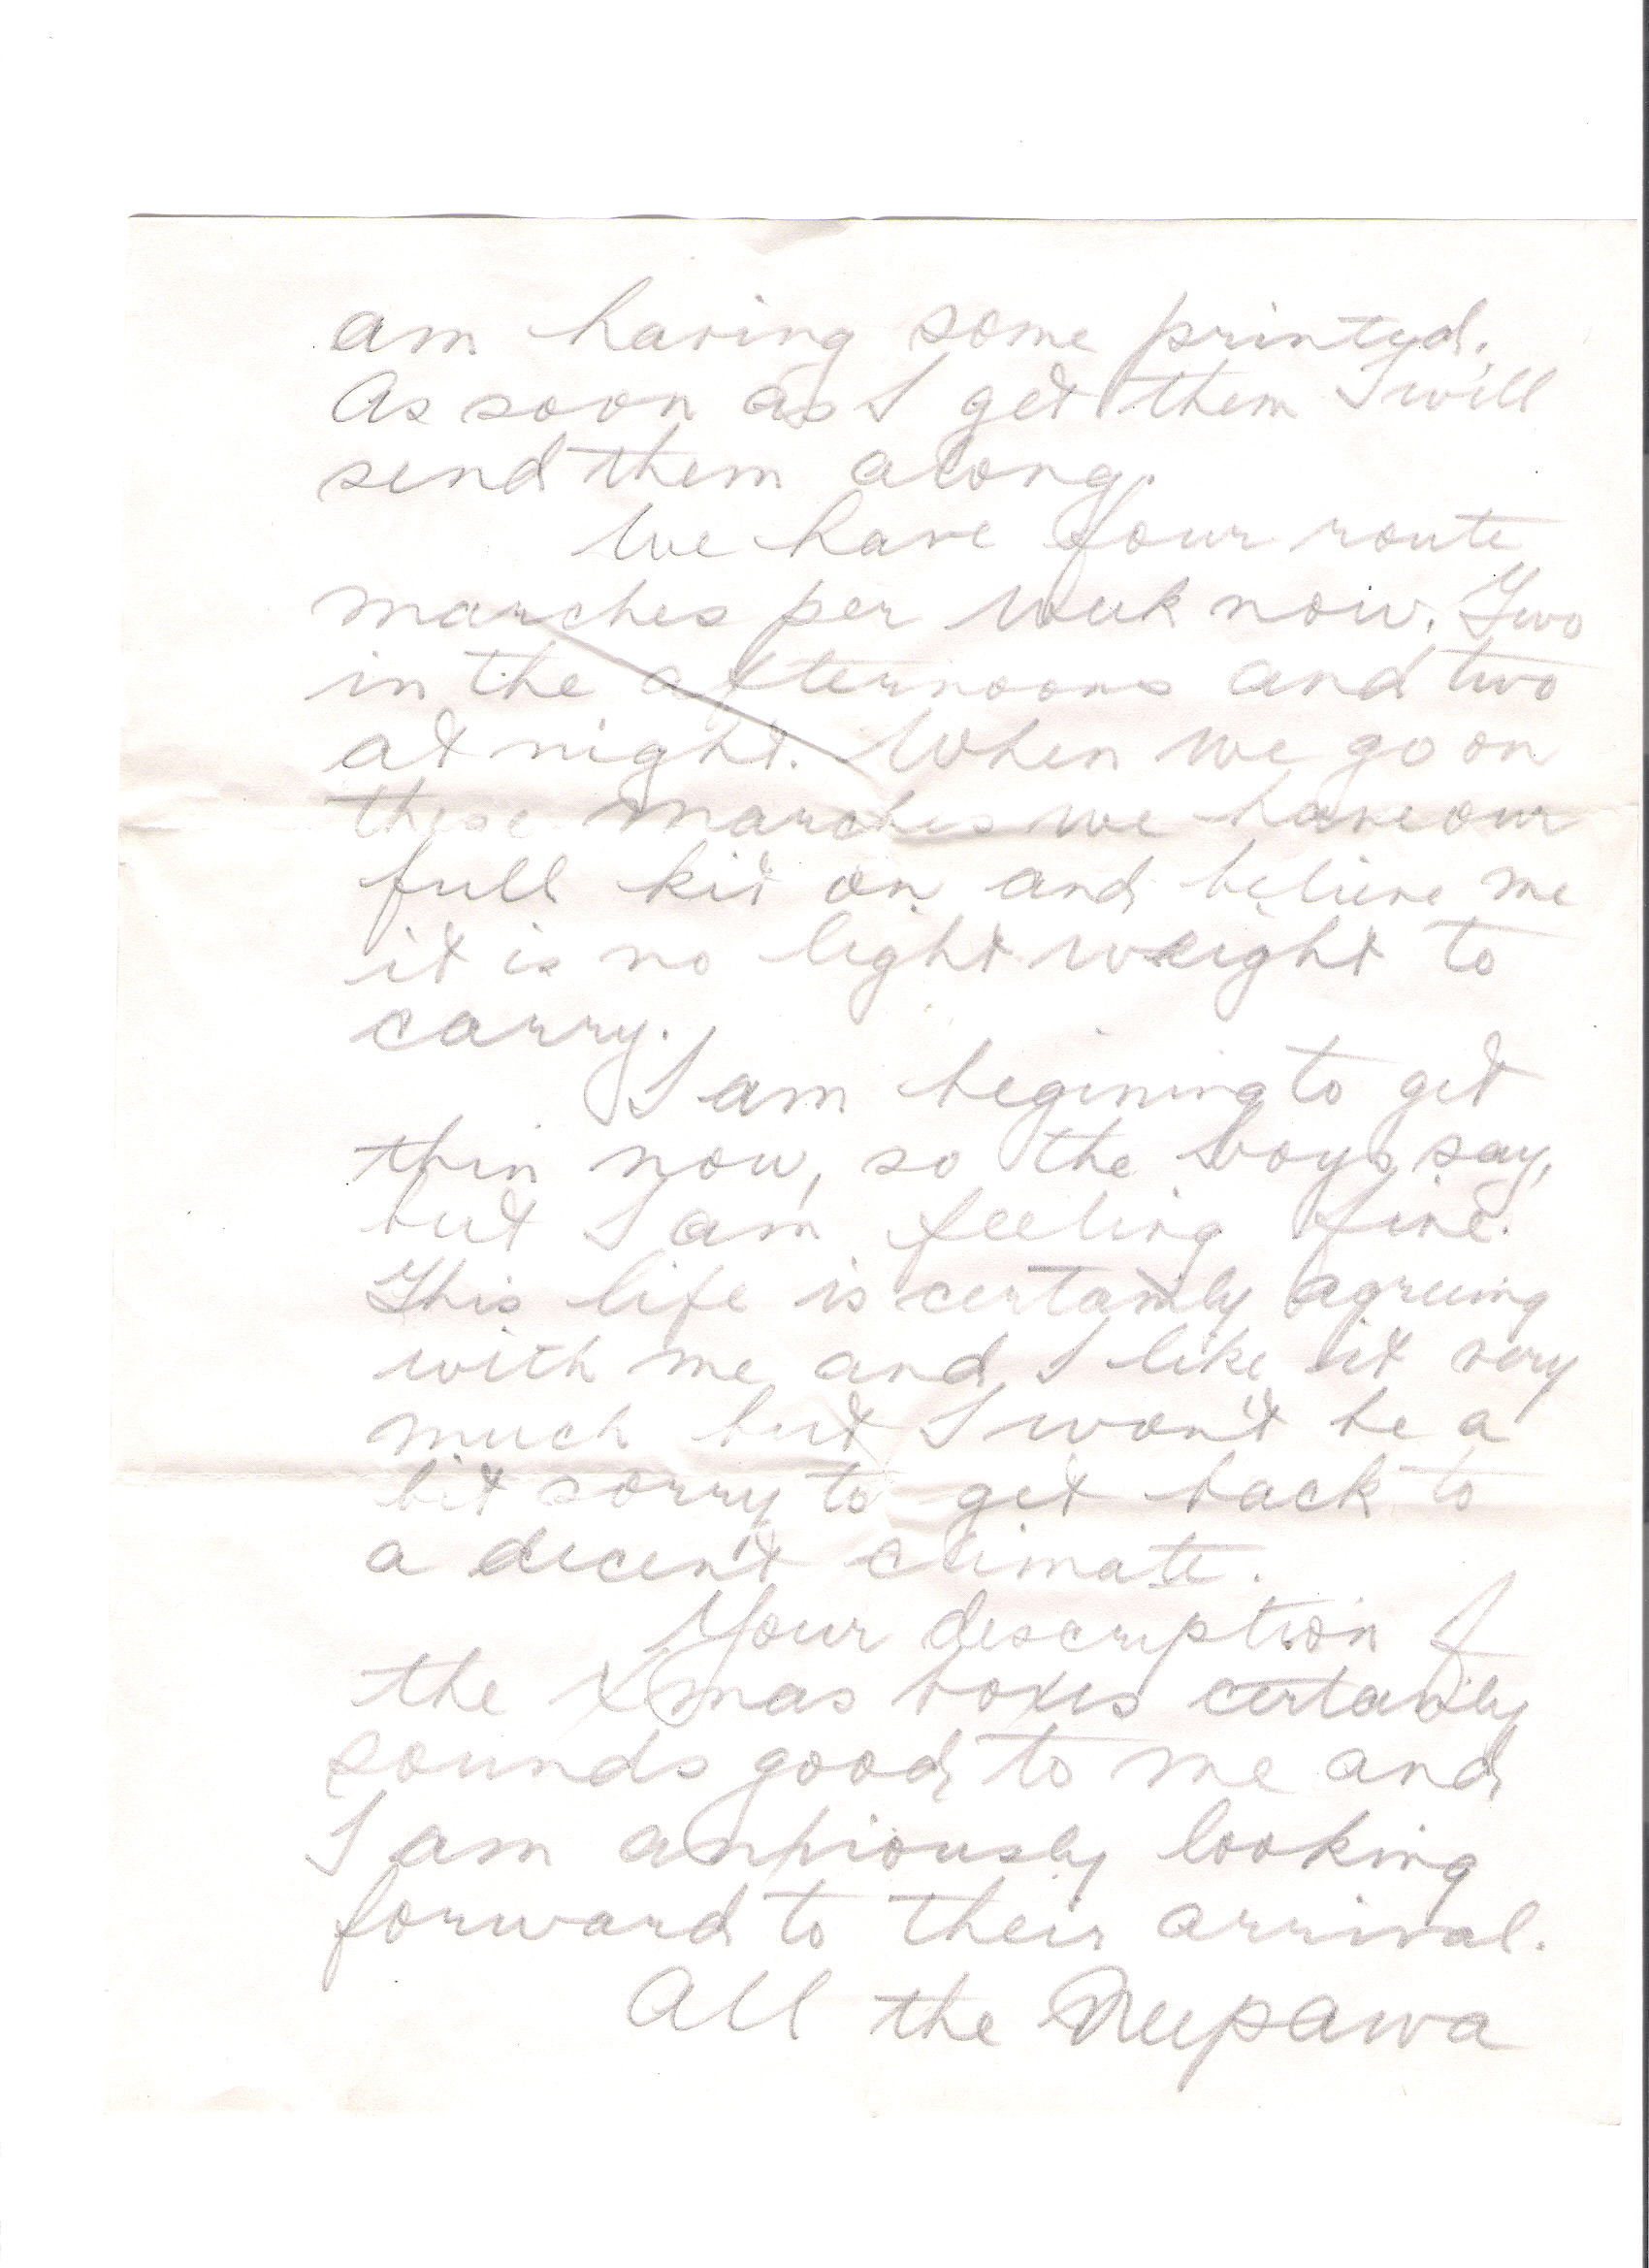 am having some printed.
As soon as I get them I will
send them along.
We have four route
marches per week now. Two
in the afternoons and two
at night. When we go on
these marches we have our
full kit on and believe me
it is no light weight to
carry.
I am begining to get
thin now, so the boys say,
but I am feeling fine.
This life is certainly agreeing
with me and I like it very
much but I won't be a
bit sorry to get back to
a decent climate.
Your description of
the Xmas boxes certainly
sounds good to me and
I am anxiously looking
forward to their arrival.
All the Neepawa